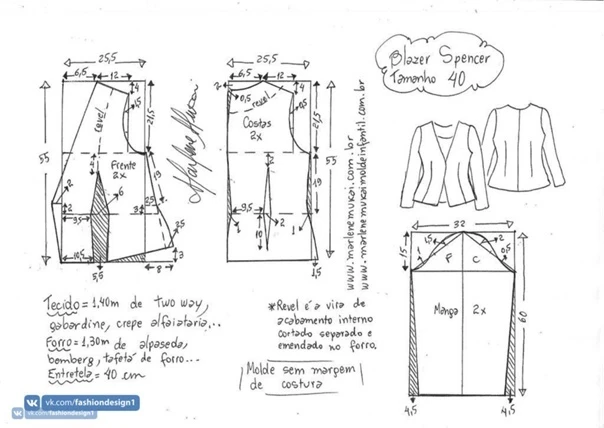 Blazer Spencer
Tamanho 40
25,5
6,5
12
4
revel
1,5
21,5
55
Frente
2x
4
19
2
6
2
9,5
3
2,5
25
10,5
5,5
8
3
Marlene Mukai
25,5
6,5
12
2
0,5
4
revel
Costas
2x
21,5
55
4
19
9,5
2
10
1
1
1,5
www.marlenemukai.com.br
www.marlenemukaimoldeinfantil.com.br
32
15
1
1,5
2
0,5
F
C
Manga 2x
60
4,5
4,5
Tecido = 1,40m de two way,
gabardine, crepe alfaiataria...
Forro = 1,30m de alpaseda,
bemberg, tafetá de forro...
Entretela = 40 cm
*Revel é a vira de
acabamento interno
cortado separado e
emendado no forro.
Molde sem margem
de costura
vk.com/fashiondesign1
vk.com/fashiondesign1